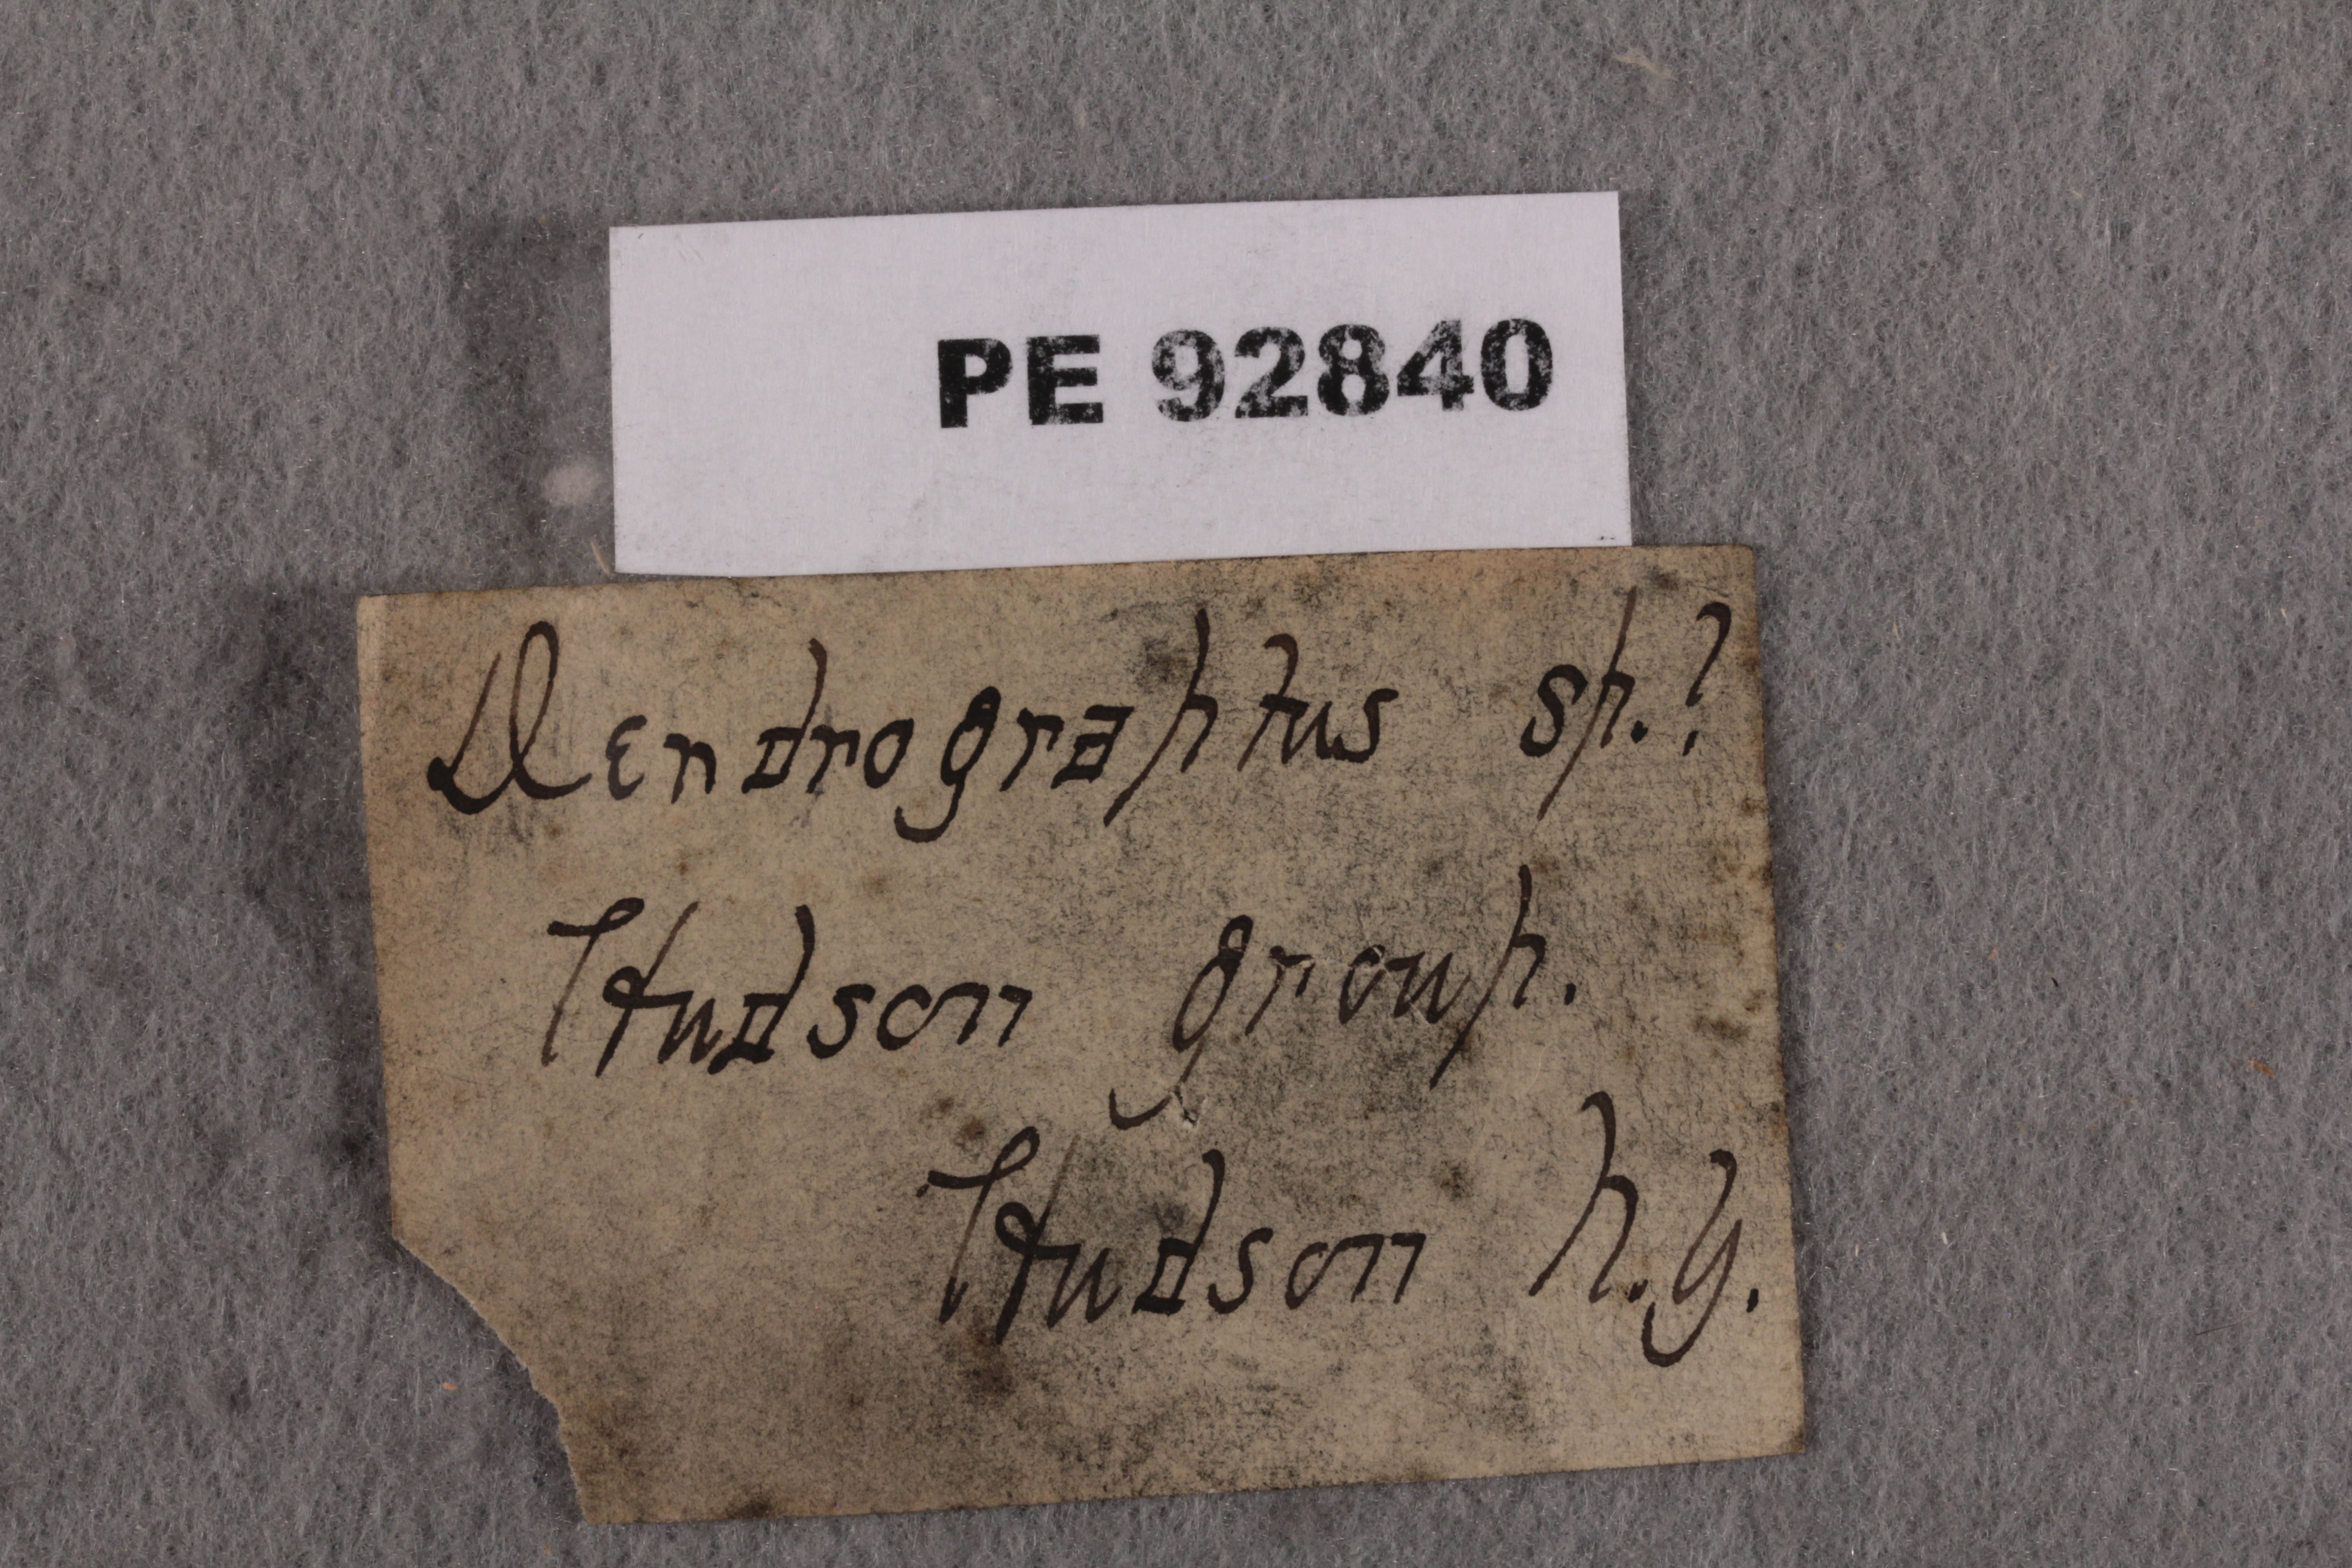 PE 92840
Dendrograptus sp.?
Hudson group.
Hudson N.Y.